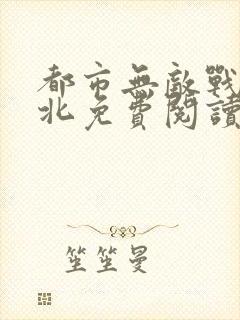 都市無敵戰
北免費閱讀
笙笙曼